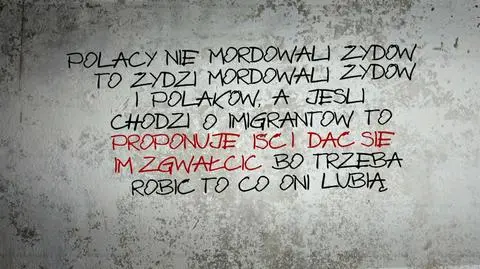 POLACY NIE MORDOWALI ŻYDÓW
TO ŻYDZI MORDOWALI ŻYDÓW
I POLAKÓW, A JEŚLI
CHODZI O IMIGRANTÓW TO
PROPONUJE IŚĆ I DAĆ SIĘ
IM ZGWAŁCIĆ BO TRZEBA
ROBIĆ TO CO ONI LUBIĄ